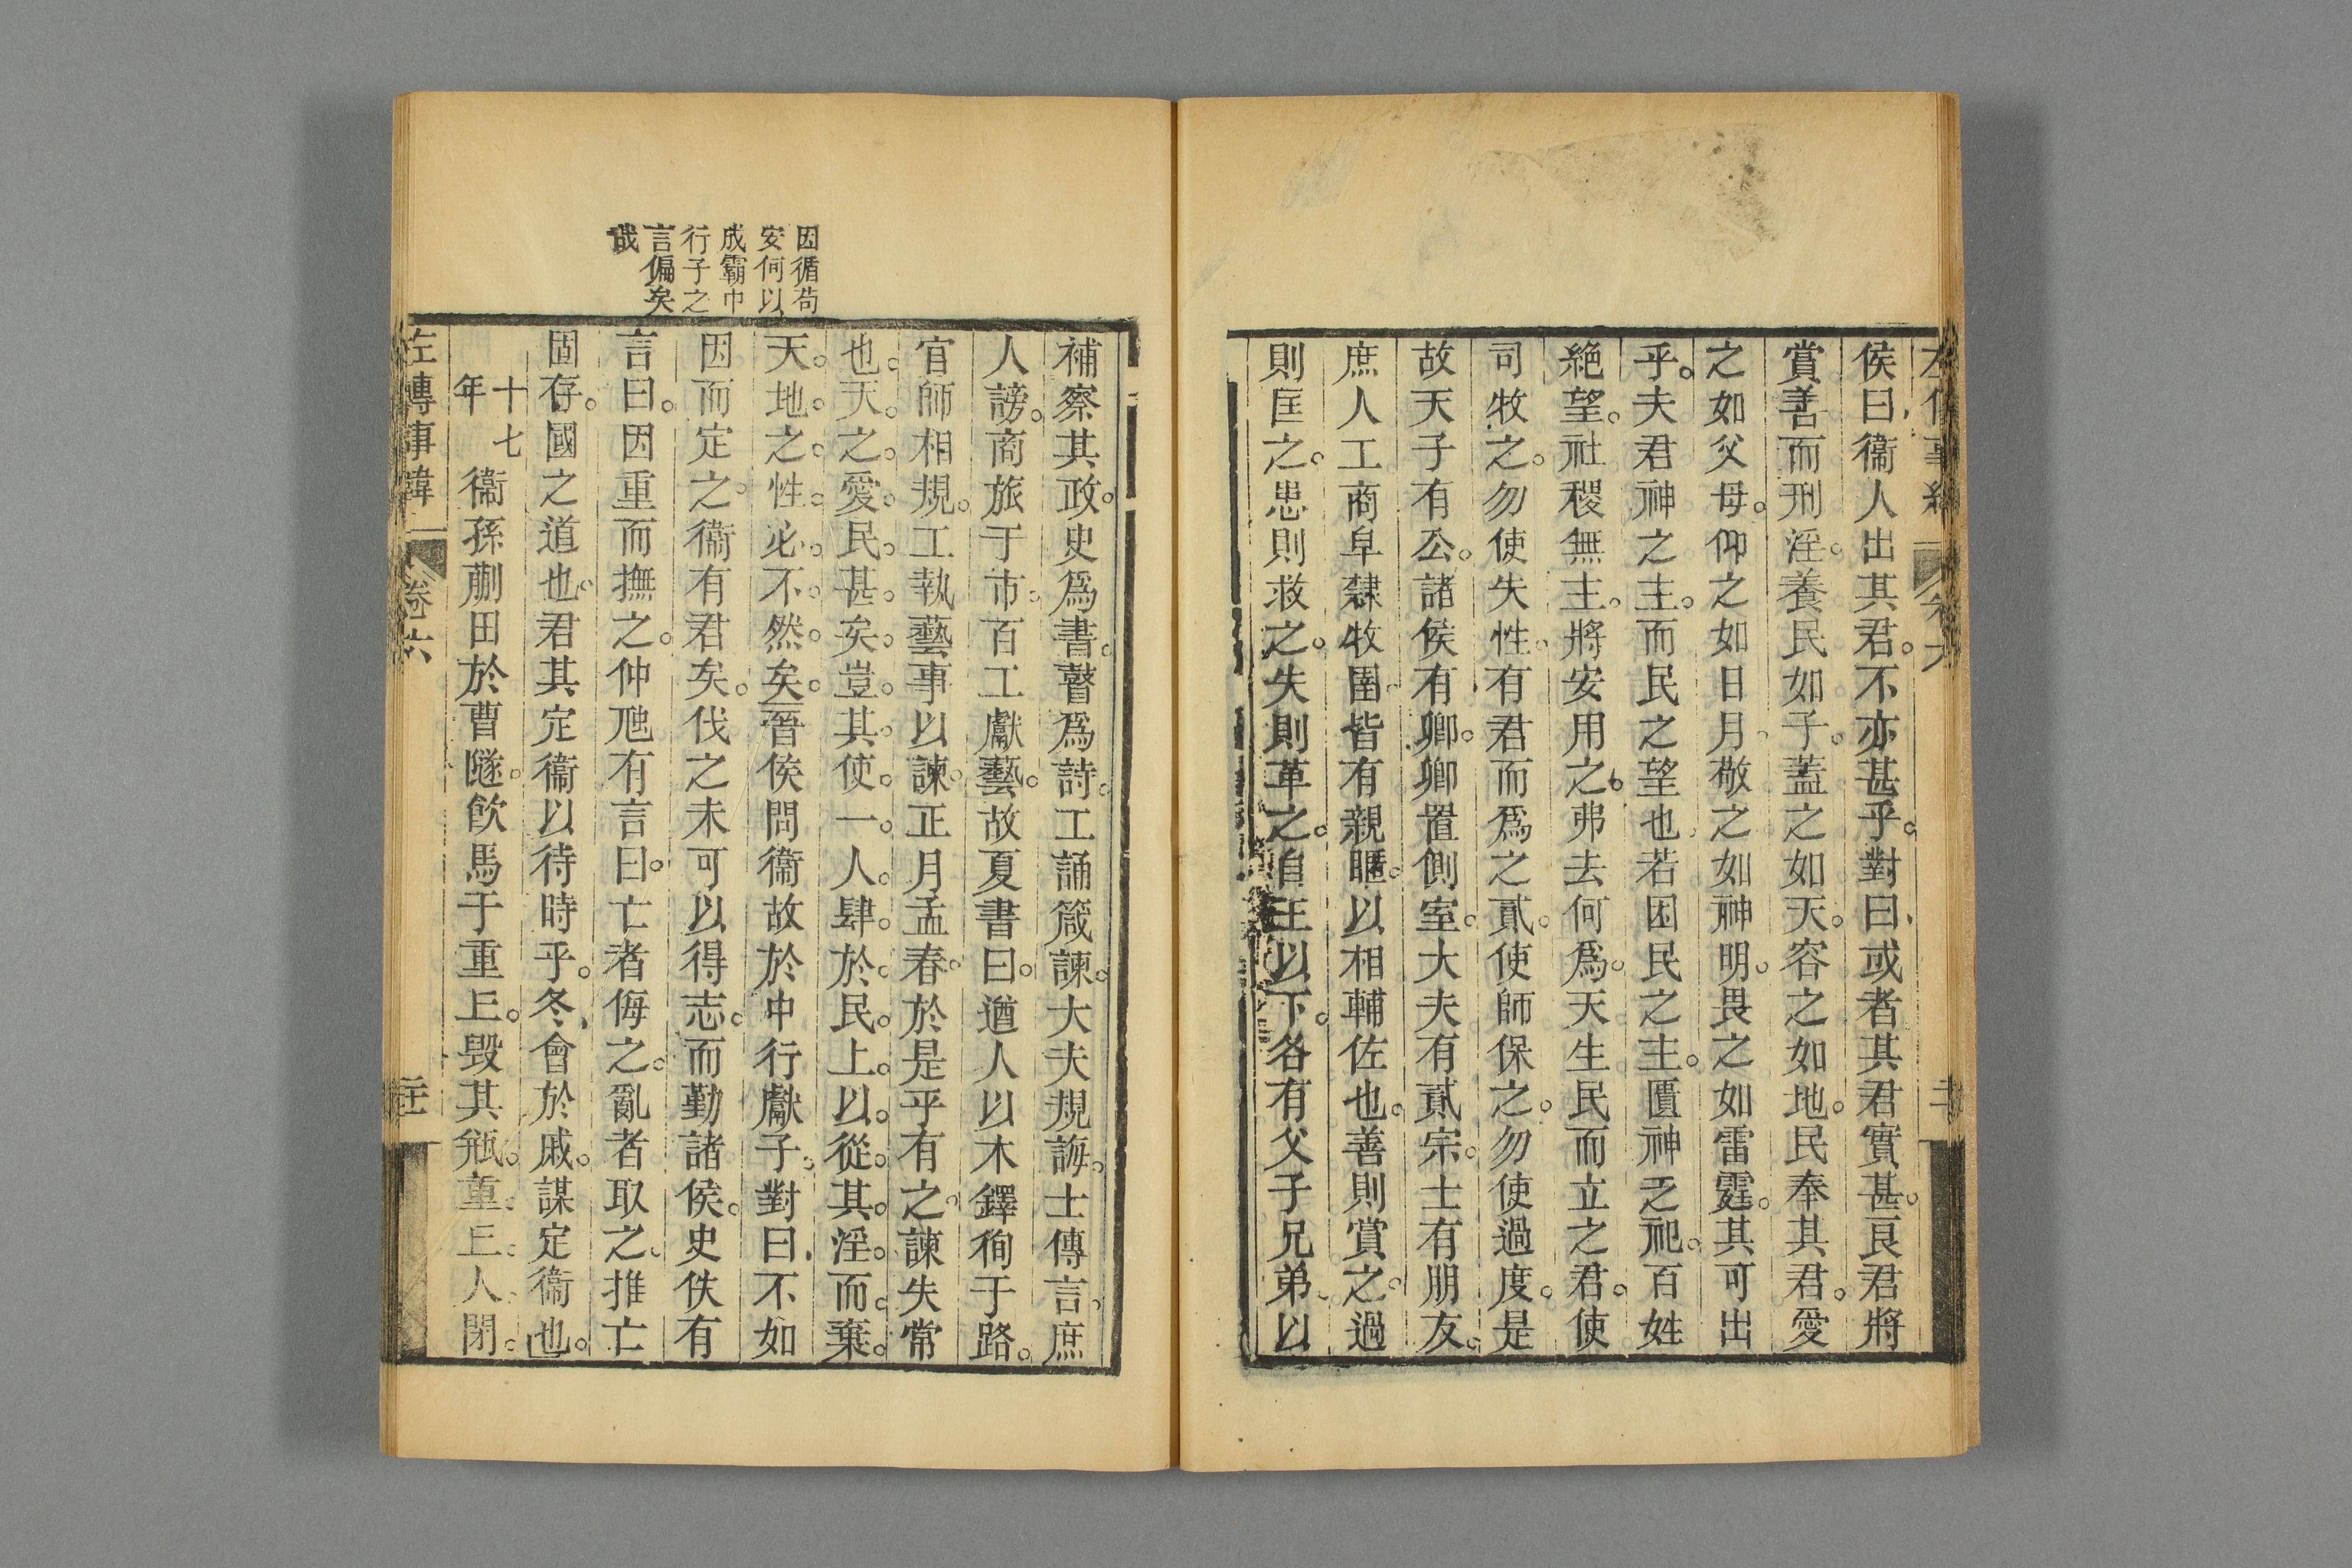 侯曰衞人出其君。不亦甚乎。對曰或者其君實甚。良君將
賞善而刑淫。養民如子。蓋之如天。容之如地。民奉其君。愛
之如父母。仰之如日月。敬之如神明。畏之如雷霆。其可出
乎。夫君神之主。而民之望也。若困民之主。匱神之祀。百姓
絶望。社稷無主。將安用之。弗去何爲。天生民而立之君。使
司牧之。勿使失性。有君而爲之貳。使師保之。勿使過度。是
故天子有公。諸侯有卿。卿置側室。大夫有貳宗。士有朋友。
庶人工商皁隸牧圉。皆有親暱。以相輔佐也。善則賞之。過
則匡之。患則救之。失則革之。自王以下。各有父子兄弟。以
補察其政。史爲書。瞽爲詩。工誦箴諫。大夫規誨。士傳言。庶
人謗。商旅于市。百工獻藝。故夏書曰。遒人以木鐸徇于路。
官師相規。工執藝事以諫。正月孟春。於是乎有之。諫失常
也。天。之。愛。民。甚。矣。豈。其。使。一。人。肆。於。民。上。以。從。其。淫。而。棄。
天。地。之。性。必。不。然。矣。晉侯問衞故於中行獻子。對曰不如
因而定之。衞有君矣。伐之未可以得志。而勤諸侯。史佚有
言曰。因重而撫之。仲虺有言曰。亡者侮之。亂者取之。推亡
固存。國之道也。君其定衞以待時乎。冬會於戚。謀定衞也。
十七年
衞孫蒯田於曹隧。飮馬于重丘。毁其瓶。重丘。人。閉。
左傳事緯
卷六
因循苟
安何以
成霸中
行子之
言偏矣
哉